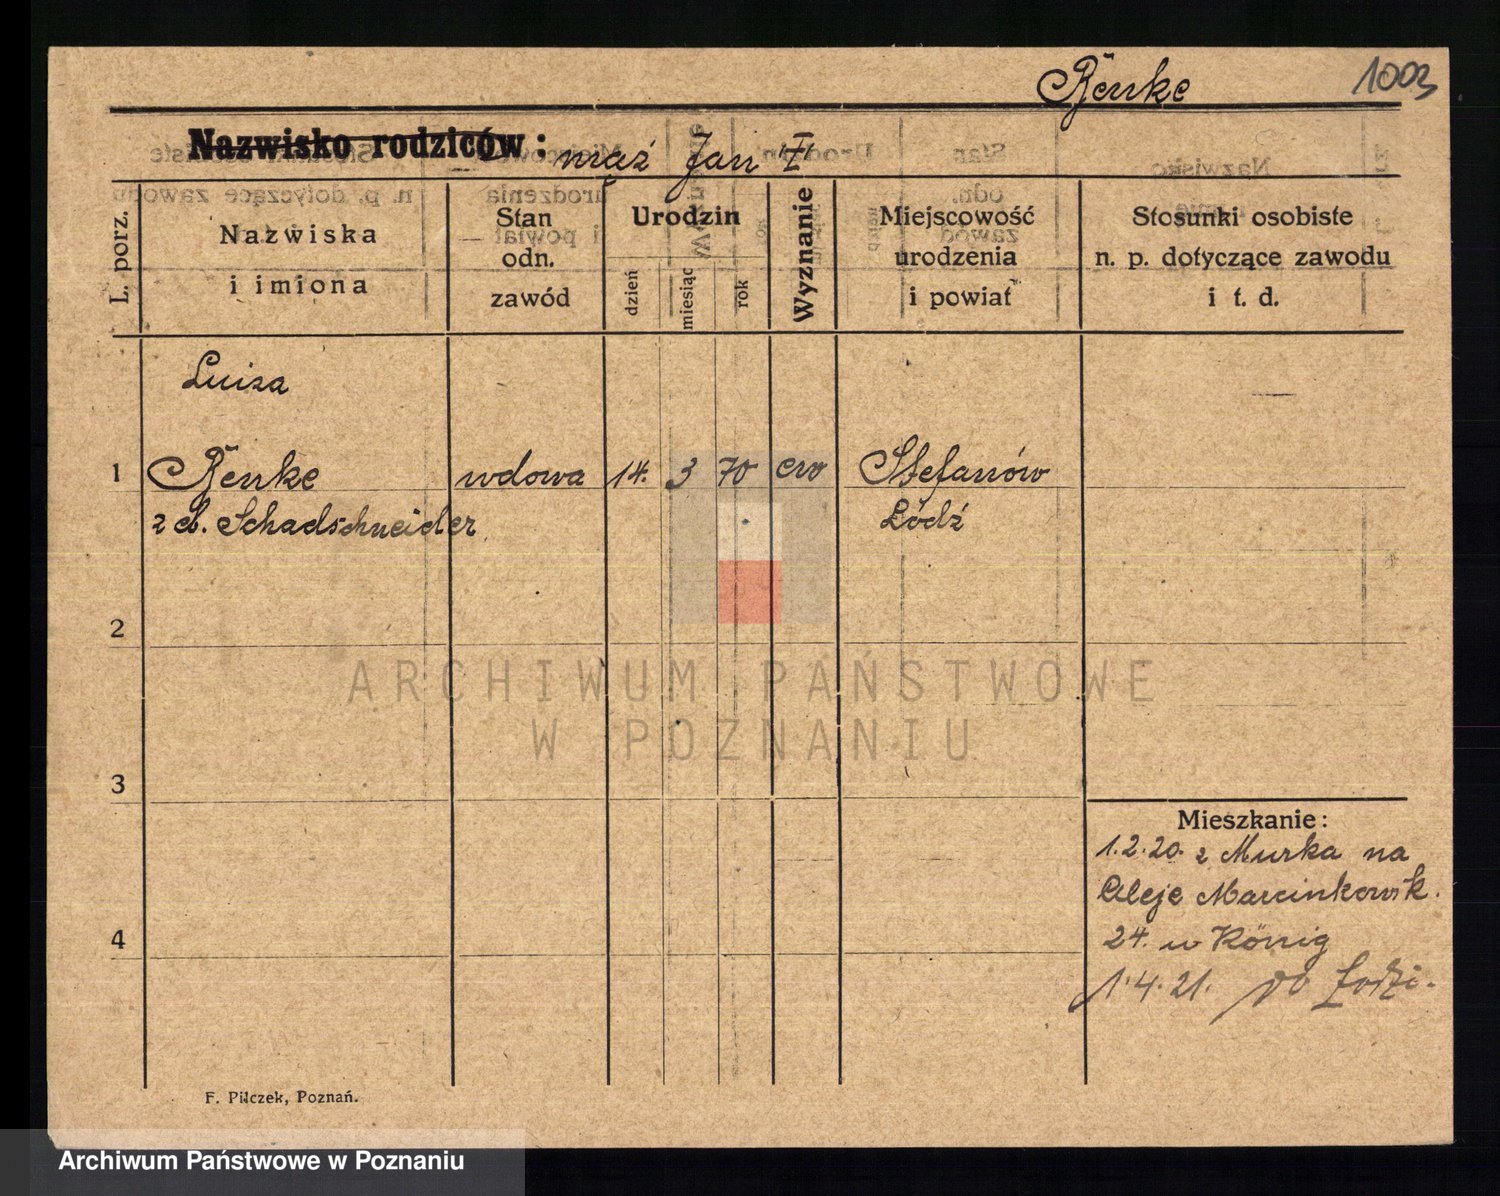 Renke 1003
Nazwisko rodziców: mąż Jan "I"
L. porz.
Nazwiska i imiona
Stan odn. zawód
Urodzin
dzień miesiąc rok
Wyznanie
Miejscowość urodzenia i powiat
Stosunki osobiste n. p. dotyczące zawodu i t. d.
Luiza
1 Renke wdowa 14. 3 70 ew Stefanów
z d. Schadschneider Łódź
2
3
Mieszkanie:
1.2.20. z Murka na
Aleje Marcinkowsk.
4 24. u König
1.4.21. do Łodzi.
F. Pilczek, Poznań.
ARCHIWUM PAŃSTWOWE
W POZNANIU
Archiwum Państwowe w Poznaniu